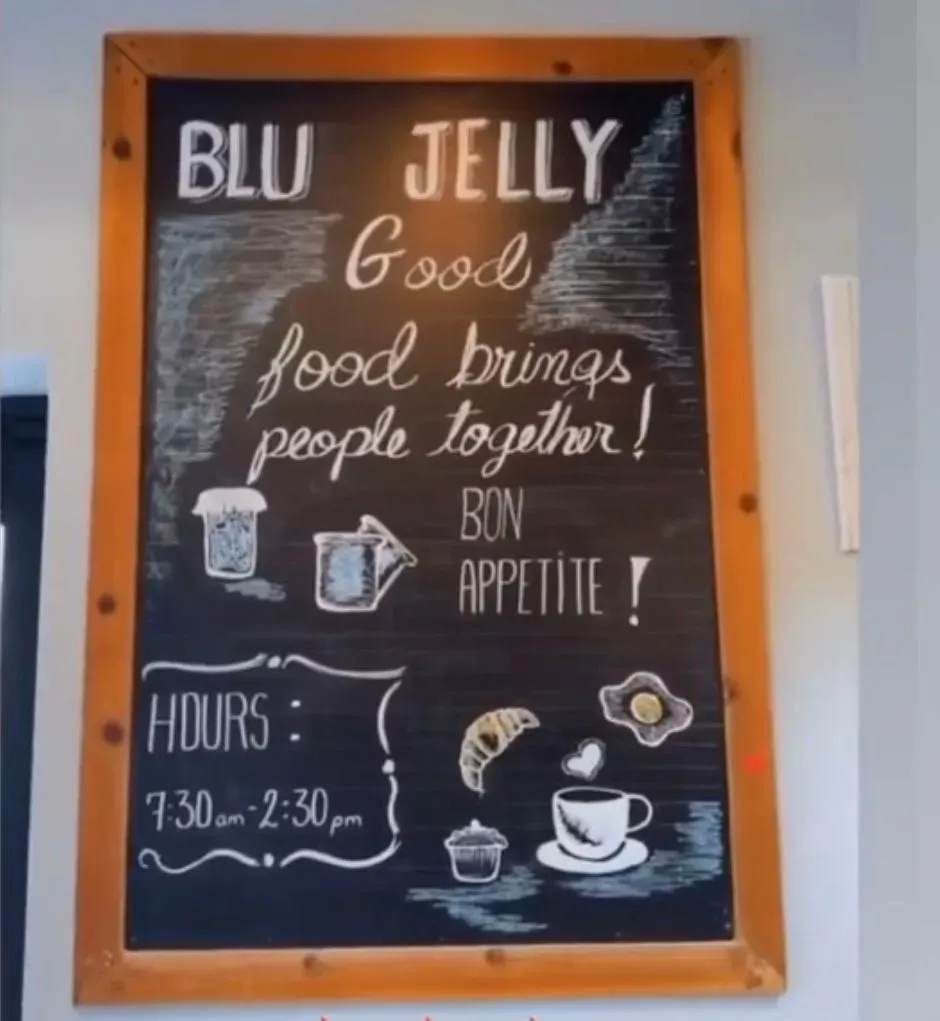 BLU JELLY
Good
food brings
people together!
BON
APPETITE !
HOURS :
7:30am-2:30pm